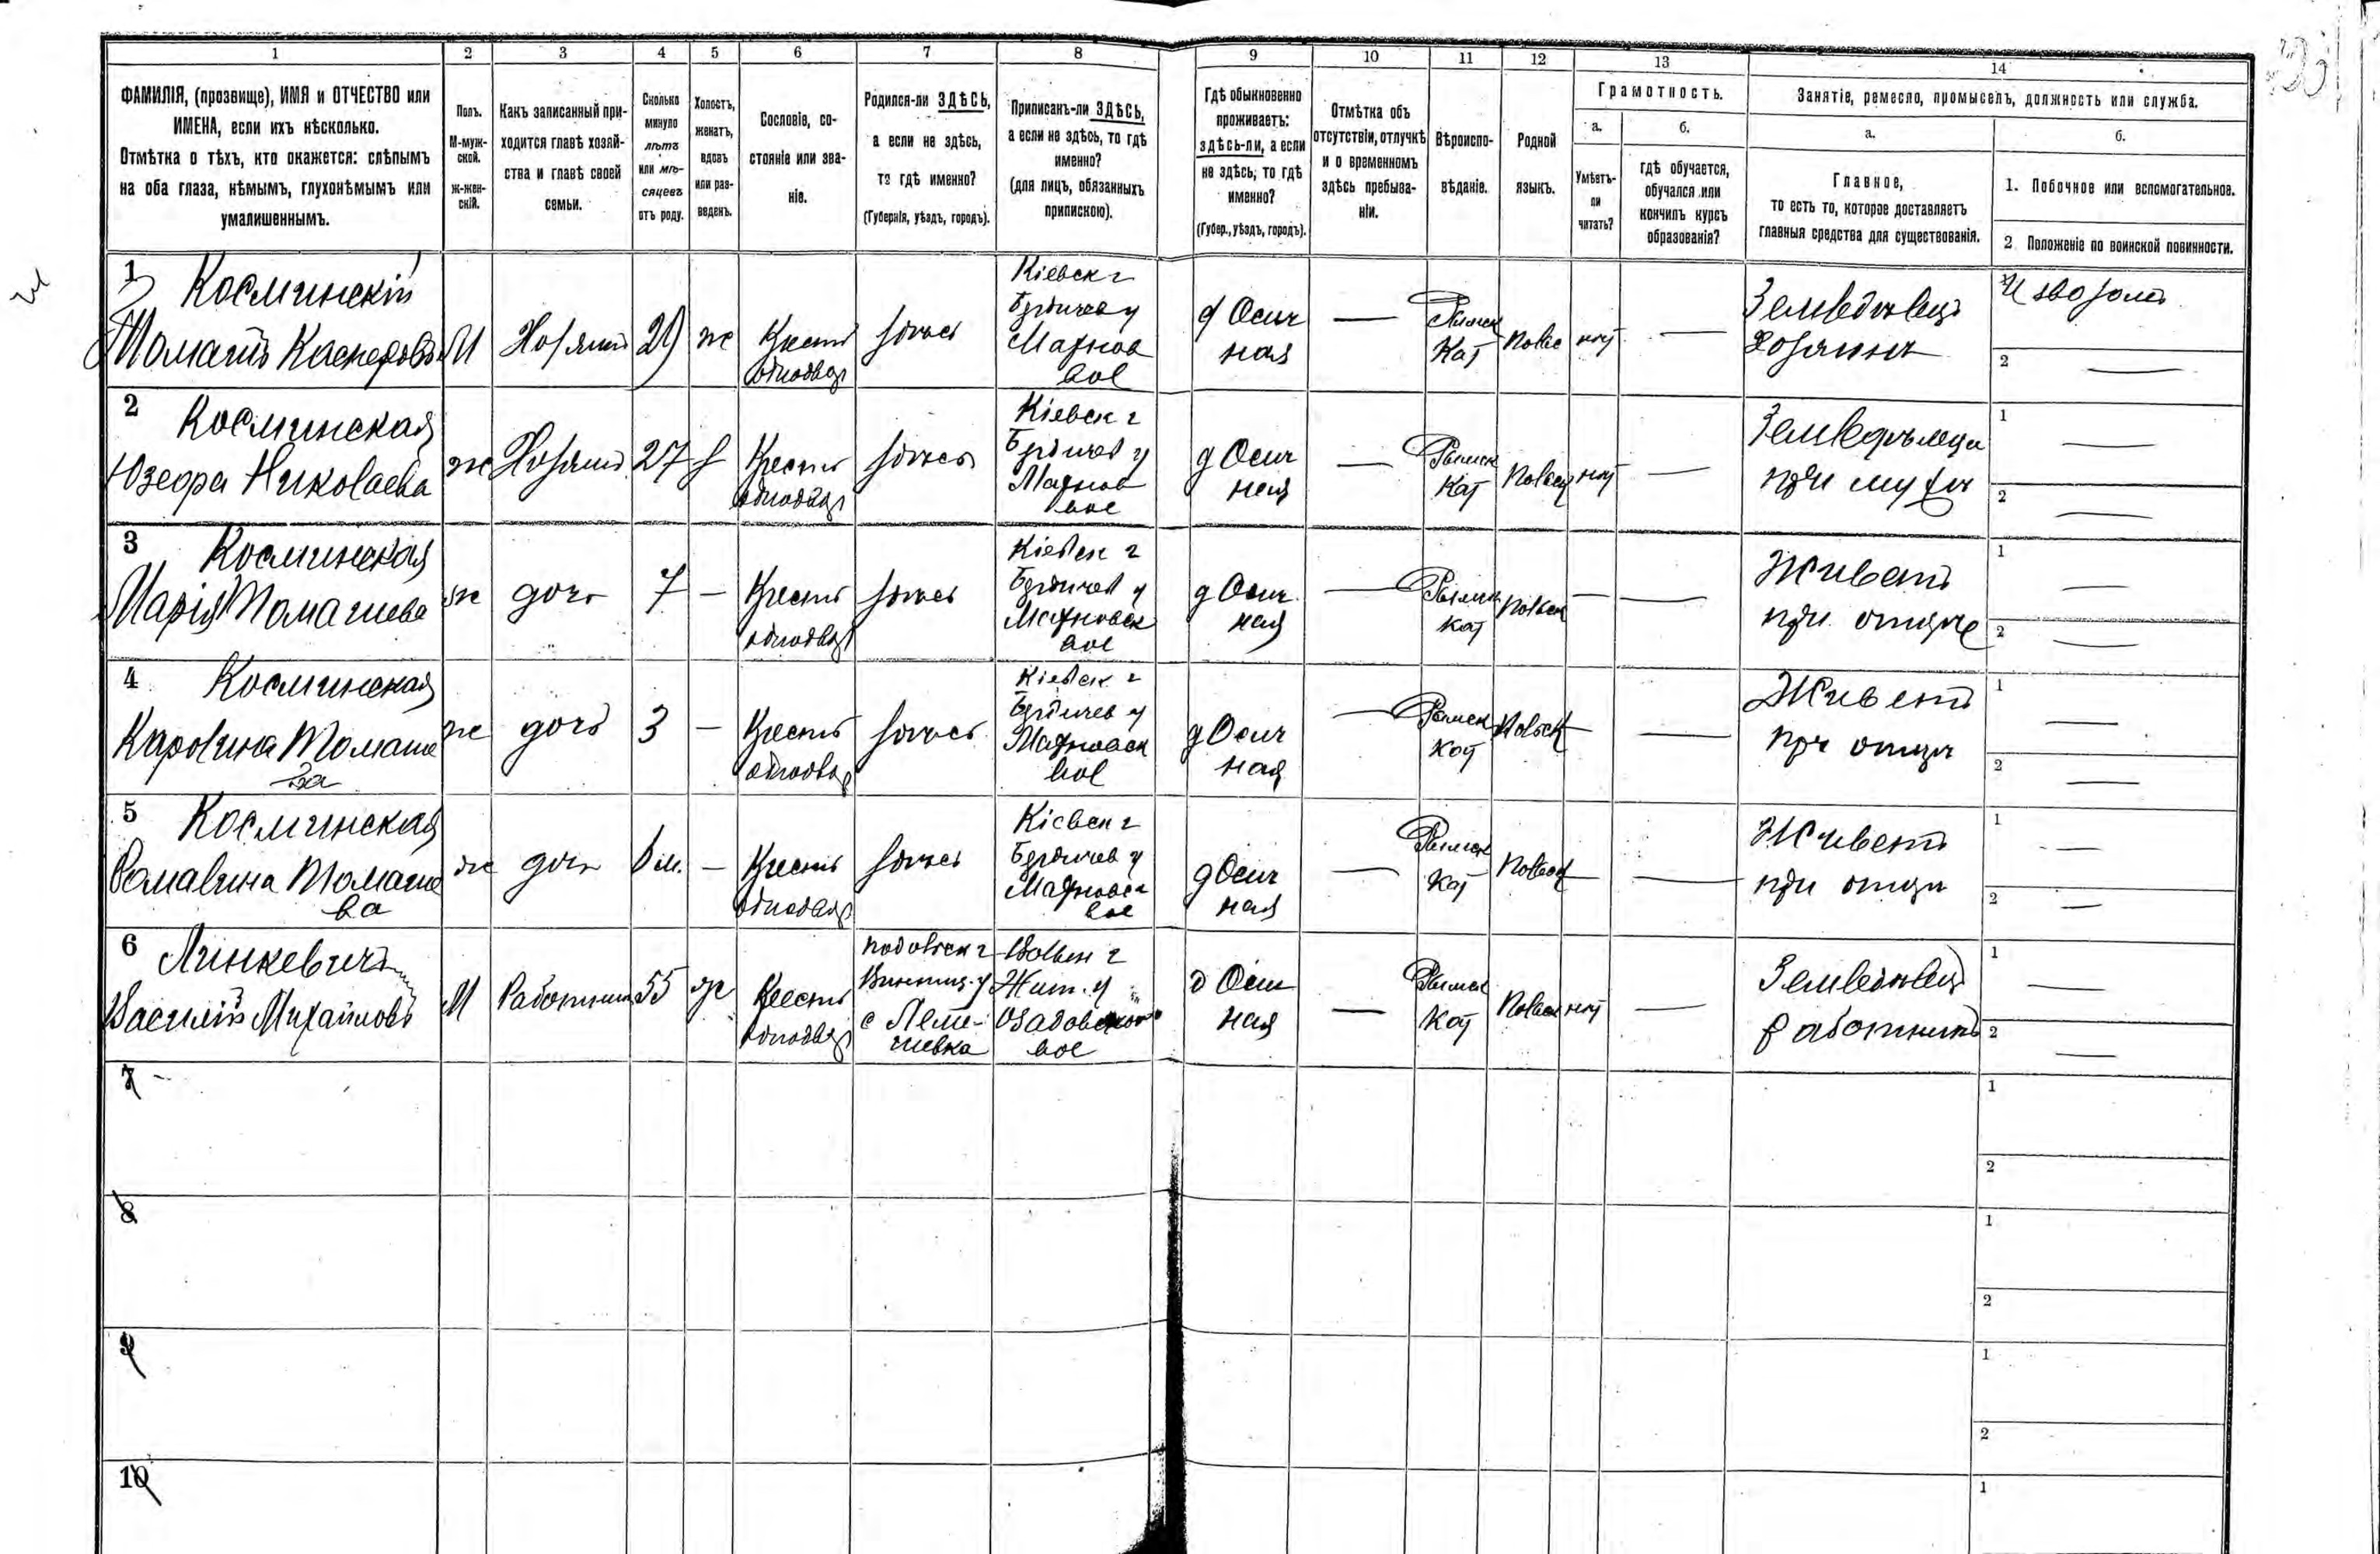 1 2 3 4 5 6 7 8 9 10 11 12 13 14
ФАМИЛІЯ, (прозвище), ИМЯ и ОТЧЕСТВО или
ИМЕНА, если ихъ нѣсколько.
Отмѣтка о тѣхъ, кто окажется: слѣпымъ
на оба глаза, нѣмымъ, глухонѣмымъ или
умалишеннымъ.
Полъ.
М-муж-
ской.
Ж-жен-
скій.
Какъ записанный при-
ходится главѣ хозяй-
ства и главѣ своей
семьи.
Сколько
минуло
лѣтъ
или мѣ-
сяцевъ
отъ роду.
Холостъ,
женатъ,
вдовъ
или раз-
веденъ.
Сословіе, со-
стояніе или зва-
ніе.
Родился-ли ЗДѢСЬ,
а если не здѣсь,
то гдѣ именно?
(Губернія, уѣздъ, городъ).
Приписанъ-ли ЗДѢСЬ,
а если не здѣсь, то гдѣ
именно?
(для лицъ, обязанныхъ
припискою).
Гдѣ обыкновенно
проживаетъ:
здѣсь-ли, а если
не здѣсь, то гдѣ
именно?
(Губер., уѣздъ, городъ).
Отмѣтка объ
отсутствіи, отлучкѣ
и о временномъ
здѣсь пребыва-
ніи.
Вѣроиспо-
вѣданіе.
Родной
языкъ.
Грамотность.
а.
Умѣетъ-
ли
читать?
б.
гдѣ обучается,
обучался или
кончилъ курсъ
образованія?
Занятіе, ремесло, промыселъ, должность или служба.
а.
Главное,
то есть то, которое доставляетъ
главныя средства для существованія.
б.
1. Побочное или вспомогательное.
2 Положеніе по воинской повинности.
1 Косминскій
Томашъ Касперовъ
М
29
ж
Крест
однодвор
здѣсь
Кіевск г
Бердичев у
Махнов
вол
д Осич
ная
—
Римск
Кат
Польс
нѣт
—
Хозяинъ
Извозомъ
2 —
2 Косминская
Юзефа Николаева
ж
27
Крест
однодвор
здѣсь
Кіевск г
Бердичев у
Махнов
вол
д Осич
ная
—
Римск
Кат
Польск
нѣт
—
при мужѣ
1 —
2 —
3 Косминская
Марія Томашева
ж
дочь
7
—
Крест
однодвор
здѣсь
Кіевск г
Бердичев у
Махновск
вол
д Осич
ная
—
Римск
Кат
Польск
—
—
Живетъ
при отцѣ
1 —
2 —
4 Косминская
Каролина Томаше
ва
ж
дочь
3
—
Крест
однодвор
здѣсь
Кіевск г
Бердичев у
Махновск
вол
д Осич
ная
—
Римск
Кат
Польск
—
—
Живетъ
при отцѣ
1 —
2 —
5 Косминская
Томаше
ва
ж
дочь
—
Крест
однодвор
здѣсь
Кіевск г
Бердичев у
Махновск
вол
д Осич
ная
—
Римск
Кат
Польск
—
—
Живетъ
при отцѣ
1 —
2 —
6 Линкевичъ
Василій Михайловъ
М
Работник
55
ж
Крест
однодвор
Подольск г
Винниц. у
с Леме-
шевка
Волын г
Жит. у
вол
д Осич
ная
—
Римск
Кат
Польск
нѣт
—
работникъ
1 —
2 —
7
1
2
8
1
2
9
1
2
10
1